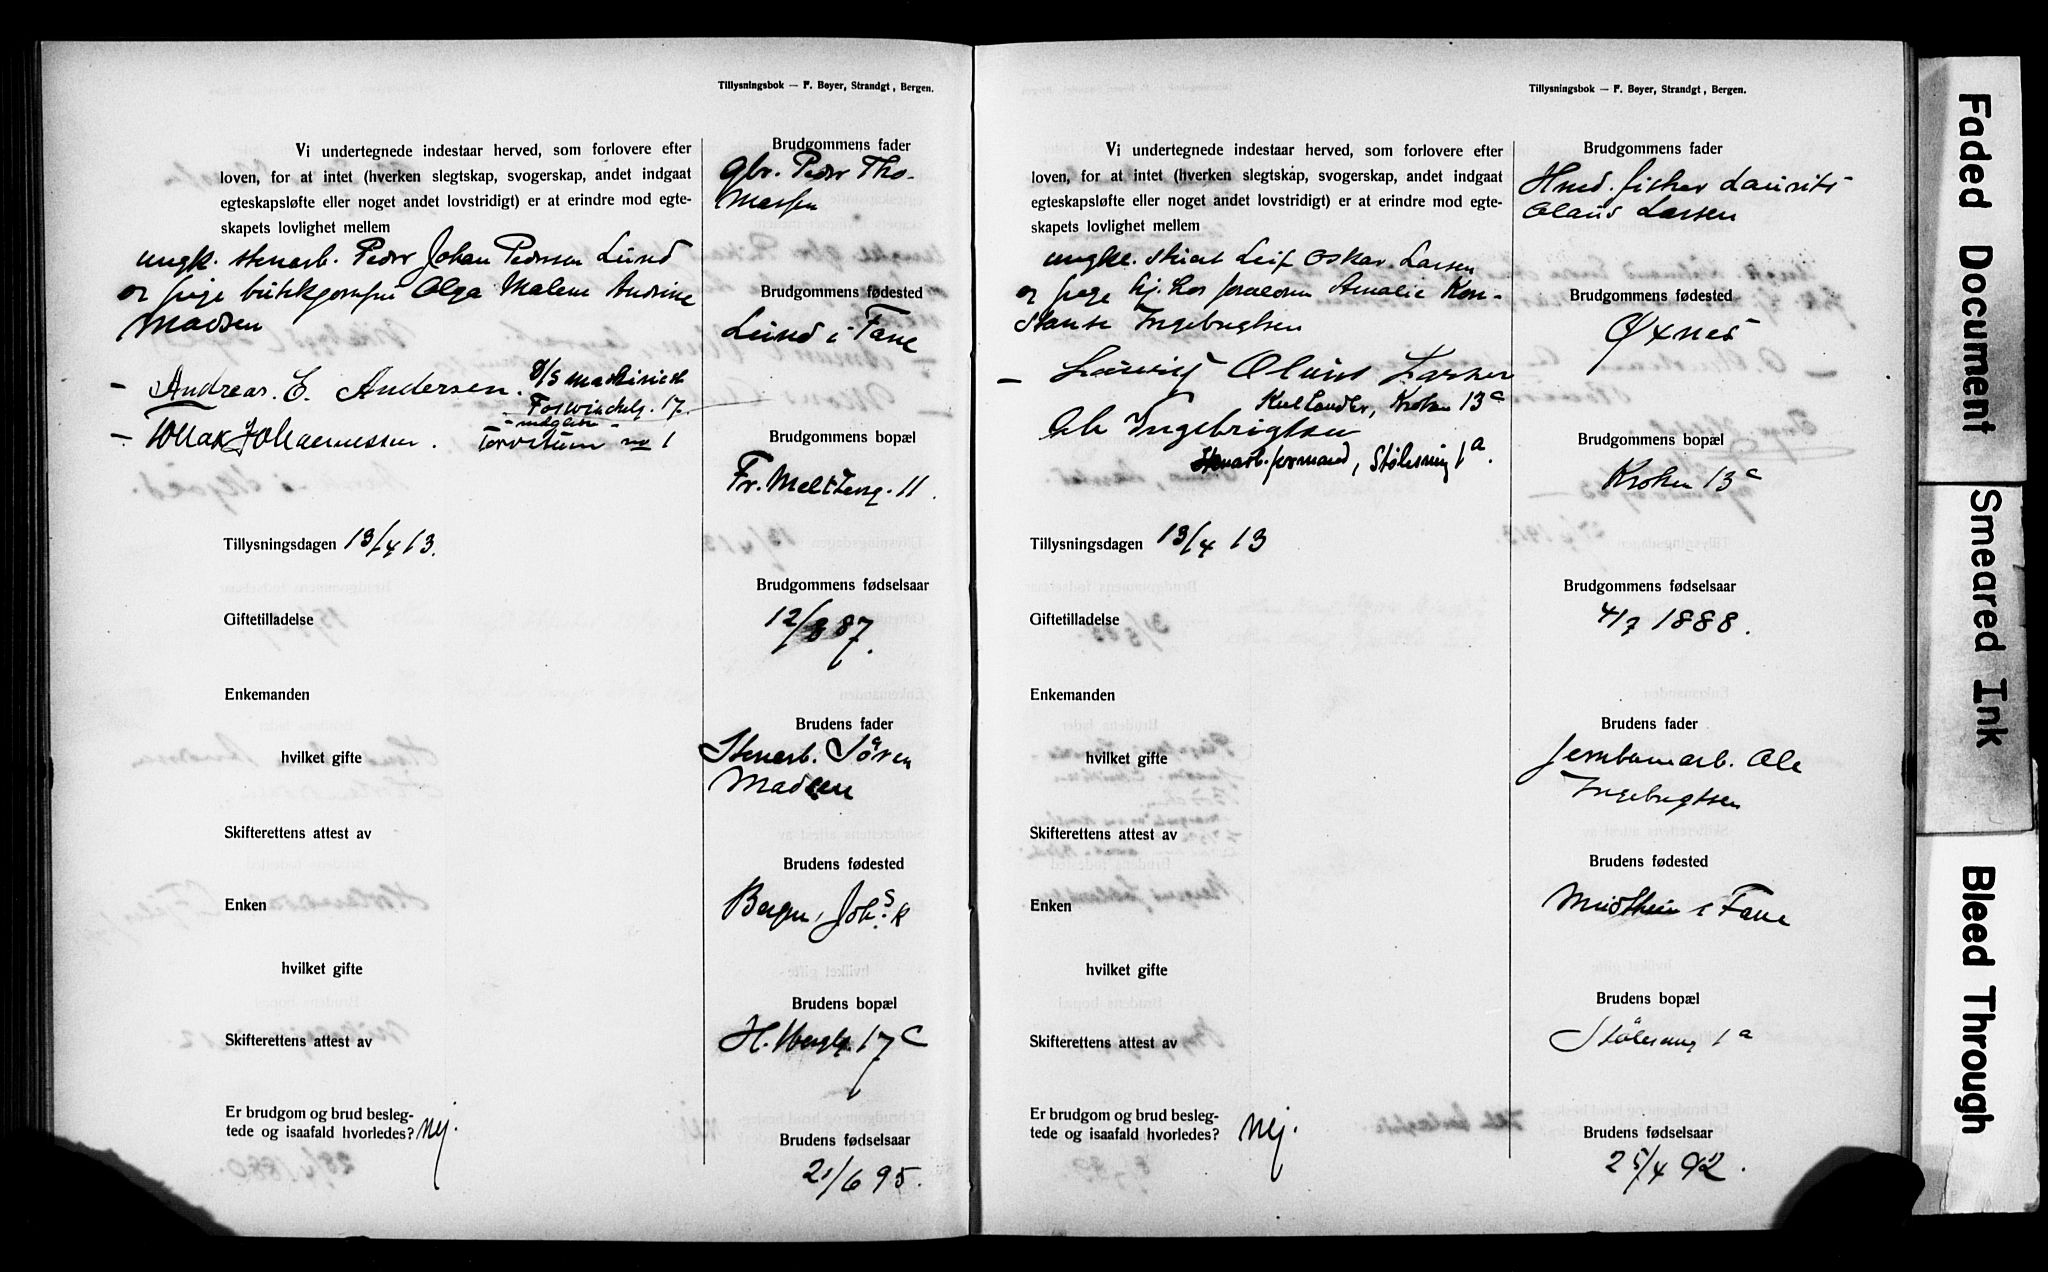 Tillysningsbok — F. Beyer, Strandgt, Bergen.
Vi undertegnede indestaar herved, som forlovere efter
loven, for at intet (hverken slegtskap, svogerskap, andet indgaat
egteskapsløfte eller noget andet lovstridigt) er at erindre mod egte-
skapets lovlighet mellem
ungk. stenarb. Peder Johan Pedersen Lund
og pige butikjomfru Olga Malene Andrine
Madsen
— Andreas. E. Andersen. D/S maskinist
Foswinckelg. 17.
— Tollak Johannessen. Torvetum no 1
Tillysningsdagen 13/4 13.
Giftetilladelse
Enkemanden
hvilket gifte
Skifterettens attest av
Enken
hvilket gifte
Skifterettens attest av
Er brudgom og brud besleg-
tede og isaafald hvorledes? Nej.
Brudgommens fader
gbr. Peder Tho-
massen
Brudgommens fødested
Lund i Fane
Brudgommens bopæl
Fr. Meltzersg. 11.
Brudgommens fødselsaar
12/8 87.
Brudens fader
Stenarb. Søren
Madsen
Brudens fødested
Bergen, Johs. k
Brudens bopæl
17 c
Brudens fødselsaar
21/6 95.
Tillysningsbok — F. Beyer, Strandgt, Bergen.
Vi undertegnede indestaar herved, som forlovere efter
loven, for at intet (hverken slegtskap, svogerskap, andet indgaat
egteskapsløfte eller noget andet lovstridigt) er at erindre mod egte-
skapets lovlighet mellem
ungk. Leif Oskar Larsen
og pige hj. hos forældren Amalie Kon-
stanse Ingebrigtsen
— Laurits Olaus Larsen
Kroken 13 c
Ole Ingebrigtsen
formand, Stølesmug 1 a.
Tillysningsdagen 13/4 13
Giftetilladelse
Enkemanden
hvilket gifte
Skifterettens attest av
Enken
hvilket gifte
Skifterettens attest av
Er brudgom og brud besleg-
tede og isaafald hvorledes? Nej.
Brudgommens fader
fisker Laurits
Olaus Larsen
Brudgommens fødested
Øxnes
Brudgommens bopæl
Kroken 13 c
Brudgommens fødselsaar
4/7 1888.
Brudens fader
Jernbanearb. Ole
Ingebrigtsen
Brudens fødested
Midttun i Fane
Brudens bopæl
Stølesmug 1 a
Brudens fødselsaar
25/4 92.
Faded Document
Smeared Ink
Bleed Through